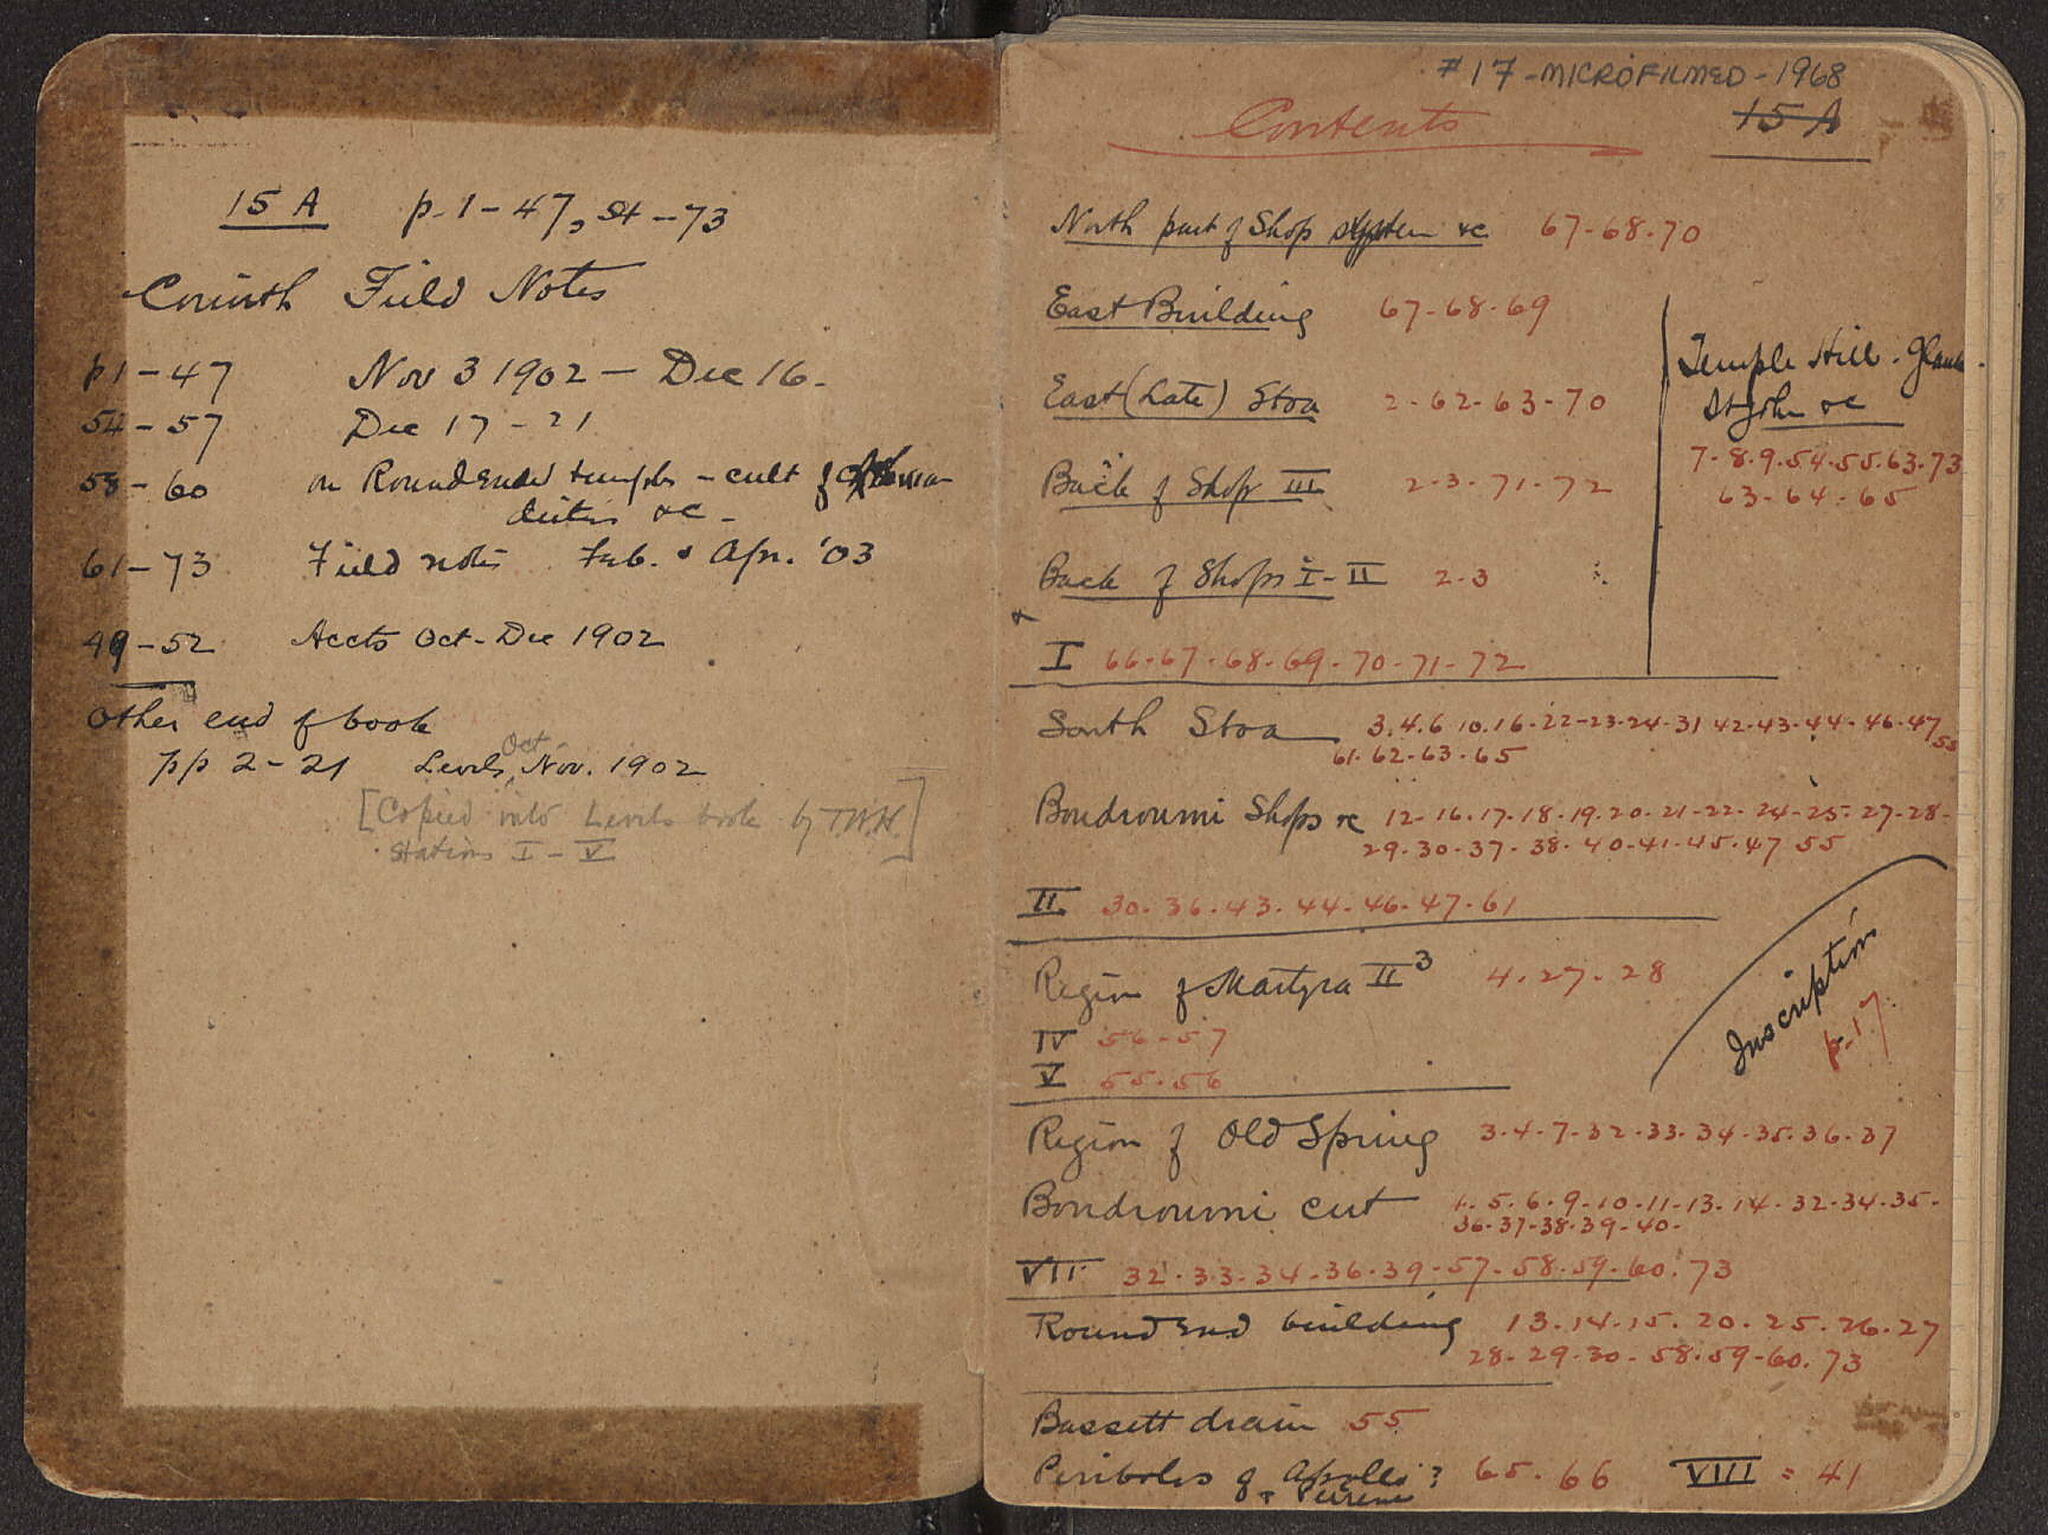 15 A p. 1-47, 54-73
Corinth Field Notes
p 1-47 Nov 3 1902 - Dec 16.
54-57 Dec 17-21
58-60 on Round ended temples - cult of
deities &c -
61-73 Field notes Feb. & Apr. '03
49-52 Accts Oct-Dec 1902
Other end of book
pp 2-21 Levels Oct Nov. 1902
[Copied into Levels book by T.W.H.
Stations I - V]
#17-MICROFILMED-1968
Contents 15 A
North part of Shop system &c 67-68.70
East Building 67-68.69
East (Late) Stoa 2-62-63-70
Back of Shop III 2.3-71-72
Back of Shops I-II 2.3
&
I 66-67-68-69-70-71-72
Temple Hill.
St John &c
7-8.9.54.55.63.73
63-64-65
South Stoa 3.4.6 10.16-22-23-24-31 42-43-44-46-47
61.62-63.65
Boudroumi Shops &c 12-16.17.18.19.20.21-22-24-25-27-28-
29.30-37-38-40-41-45.47 55
II 30.36.43.44-46-47.61
Region of Martyra II 3 4.27.28
IV 56-57
V 55.56
Inscription
p. 17
Region of Old Spring 3.4.7-32.33.34.35.36.37
Boudroumi cut 1.5.6.9-10-11-13.14.32-34-35-
36-37-38.39-40-
VII 32.33-34-36.39-57-58.59-60.73
Round End building 13.14.15.20.25.26.27
28-29.30-58.59-60.73
Bassett drain 55
Peribolos of Apollo? 65.66 VIII = 41
& Peirene